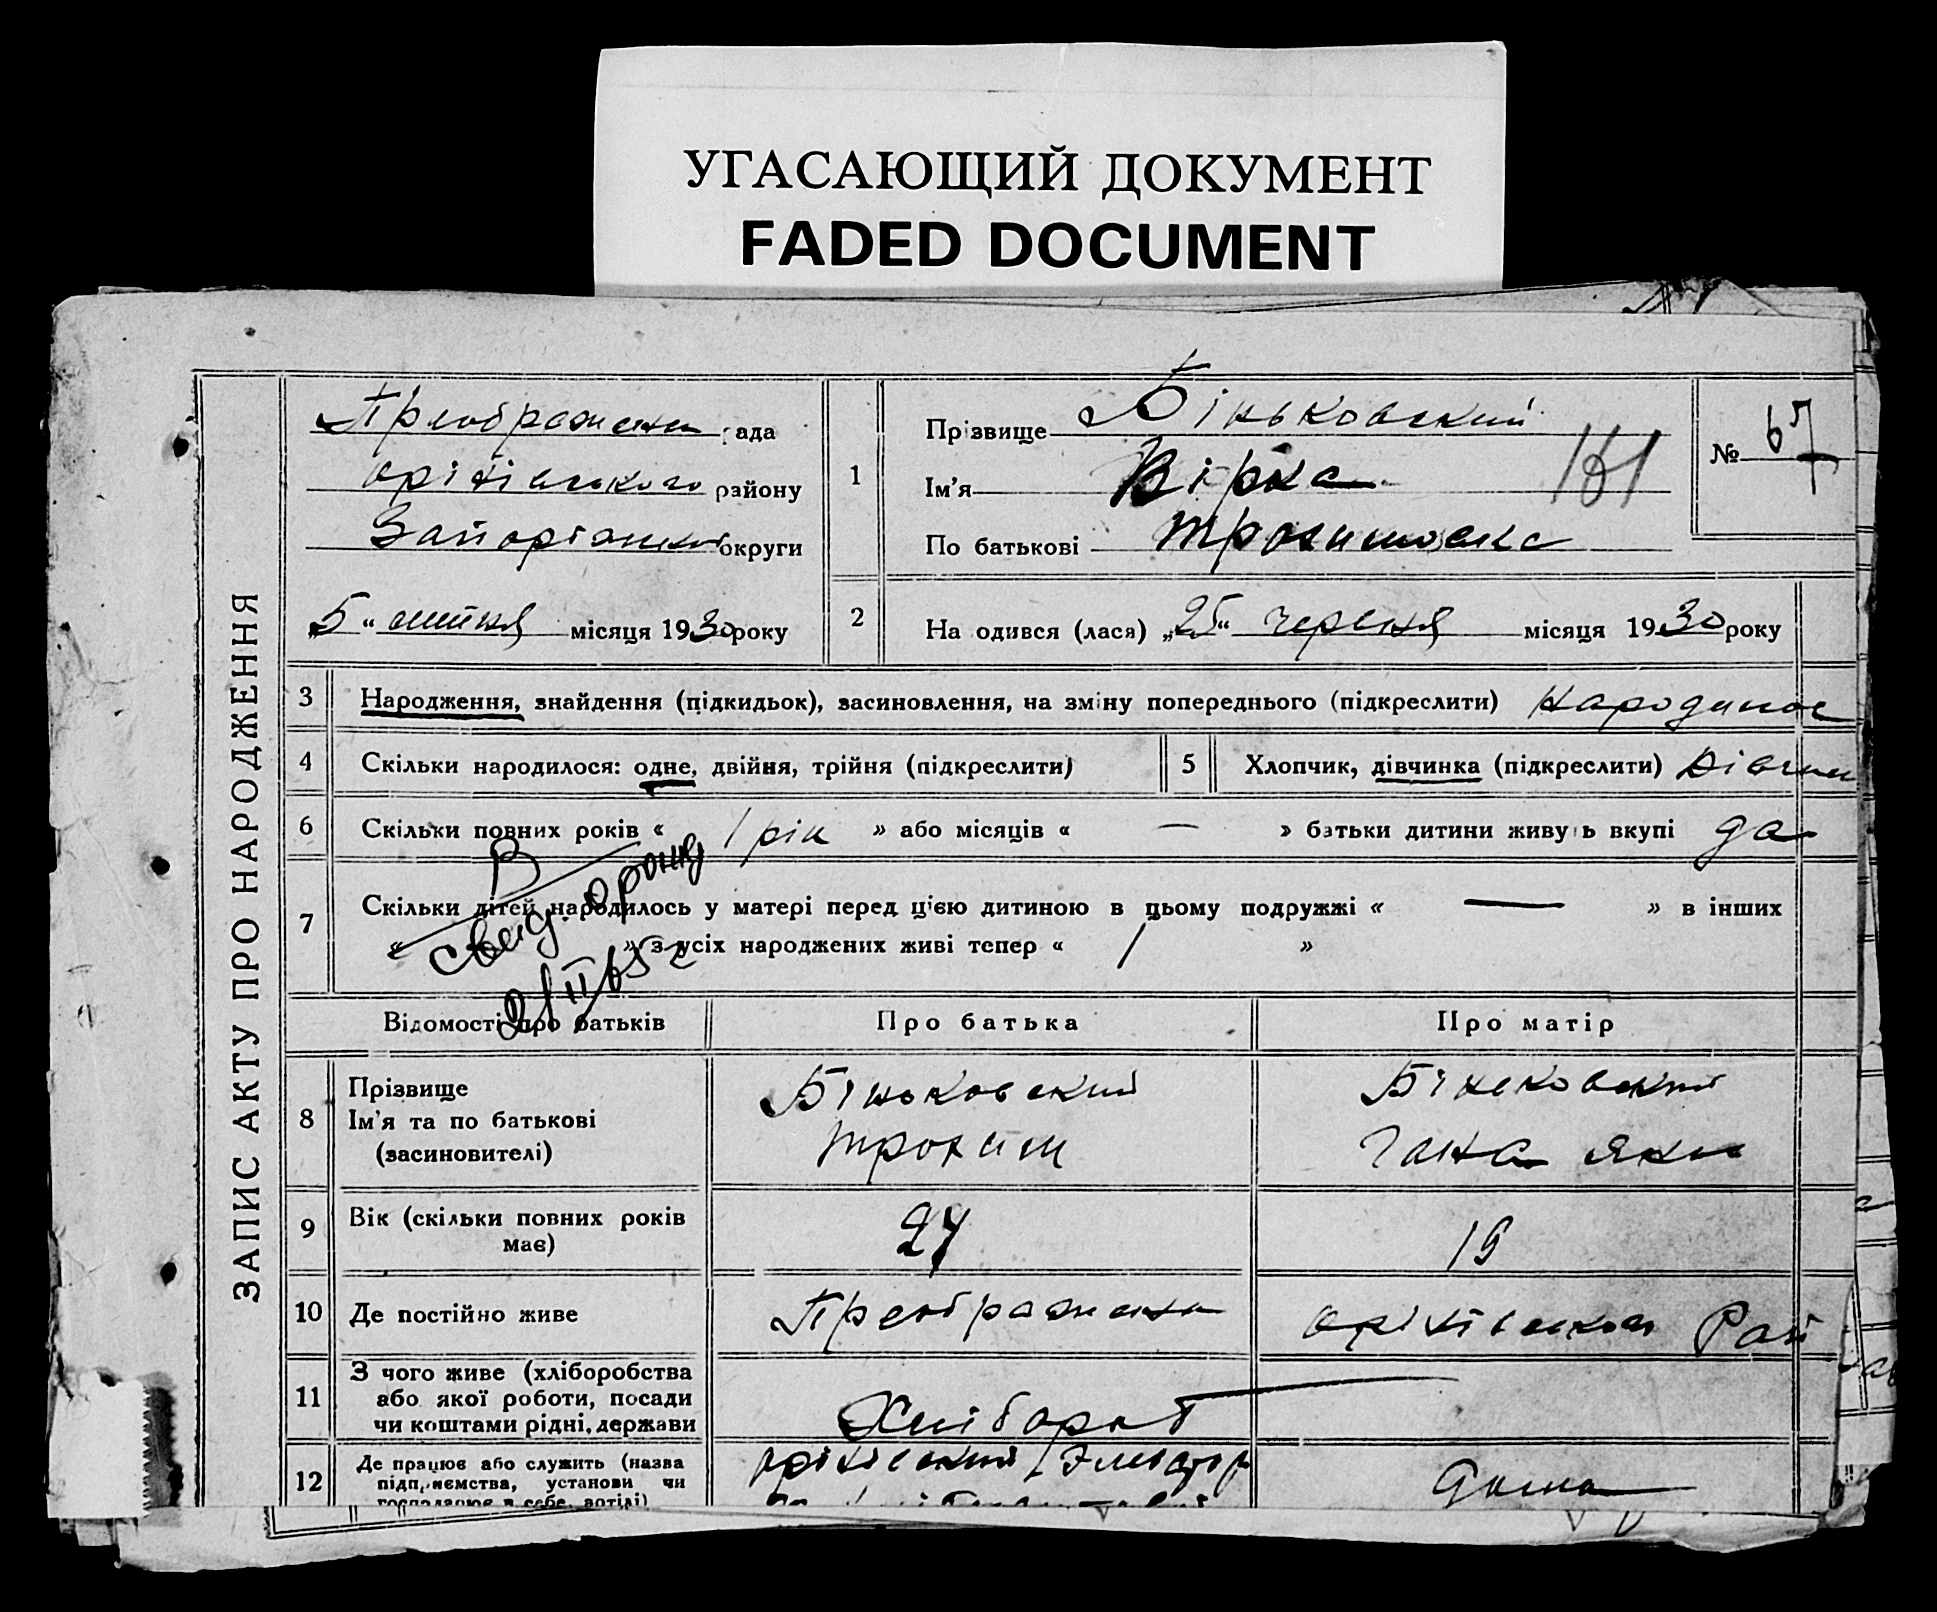 УГАСАЮЩИЙ ДОКУМЕНТ
FADED DOCUMENT
ЗАПИС АКТУ ПРО НАРОДЖЕННЯ
Преображенська рада
Оріхівського району
Запоріжської округи
„5“ липня місяця 1930 року
1
Прізвище Біньковский
Ім'я Вірка
161
По батькові Трохимовна
№ 67
2
На одився (лася) „25“ червня місяця 1930 року
3 Народження, знайдення (підкидьок), засиновлення, на зміну попереднього (підкреслити)
4 Скільки народилося: одне, двійня, трійня (підкреслити)
5 Хлопчик, дівчинка (підкреслити) Дівчин
6 Скільки повних років « 1 рік » або місяців « — » батьки дитини живуть вкупі да
7 Скільки дітей народилось у матері перед цією дитиною в цьому подружжі « — » в інших
« » з усіх народжених живі тепер « 1 »
В
свид. брон
21/II 65 г
Відомості про батьків Про батька Про матір
8 Прізвище
Ім'я та по батькові
(засиновителі)
Біньковский
Трохим
Біньковский
Гана Яки
9 Вік (скільки повних років має)
27
19
10 Де постійно живе
Преображенка
Оріхівського Рай
11 З чого живе (хліборобства
або якої роботи, посади
чи коштами рідні, держави
Хлібороб
12 Де працює або служить (назва
підприємства, установи чи
господарює в себе, артілі)
Оріхівский Элеватор
дома